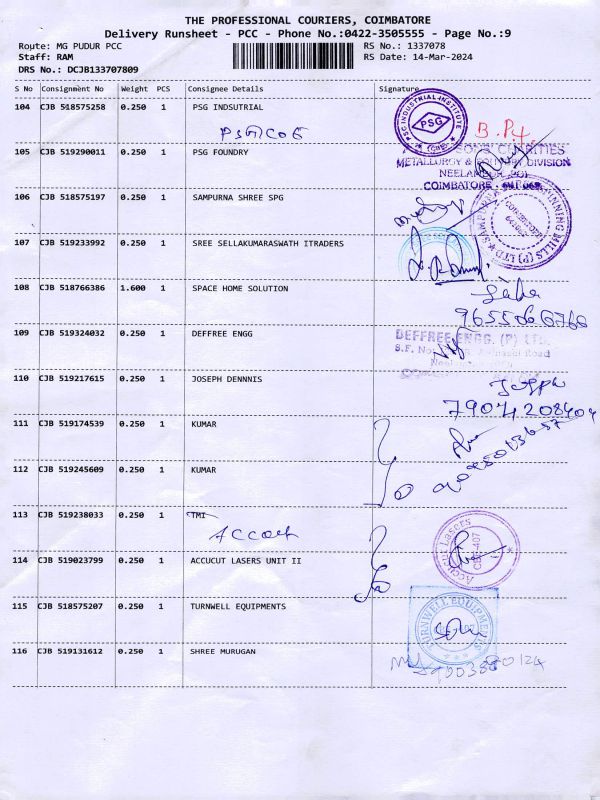 THE PROFESSIONAL COURIERS, COIMBATORE
Delivery Runsheet - PCC - Phone No.:0422-3505555 - Page No.:9
Route: MG PUDUR PCC RS No.: 1337078
Staff: RAM RS Date: 14-Mar-2024
DRS No.: DCJB133707809
S No Consignment No Weight PCS Consignee Details Signature
104 CJB 518575258 0.250 1 PSG INDSUTRIAL
PSG INDUSTRIAL INSTITUTE PSG
105 CJB 519290011 0.250 1 PSG FOUNDRY
METALLURGY & FOUNDRY DIVISION
COIMBATORE
106 CJB 518575197 0.250 1 SAMPURNA SHREE SPG
107 CJB 519233992 0.250 1 SREE SELLAKUMARASWATH ITRADERS
108 CJB 518766386 1.600 1 SPACE HOME SOLUTION
109 CJB 519324032 0.250 1 DEFFREE ENGG
DEFFREE ENGG. (P) LTD.
S.F. No. Road
110 CJB 519217615 0.250 1 JOSEPH DENNNIS
Joseph
7904208404
111 CJB 519174539 0.250 1 KUMAR
112 CJB 519245609 0.250 1 KUMAR
113 CJB 519238033 0.250 1 TMI
114 CJB 519023799 0.250 1 ACCUCUT LASERS UNIT II
Accucut Lasers
115 CJB 518575207 0.250 1 TURNWELL EQUIPMENTS
TURNWELL EQUIPMENTS
116 CJB 519131612 0.250 1 SHREE MURUGAN